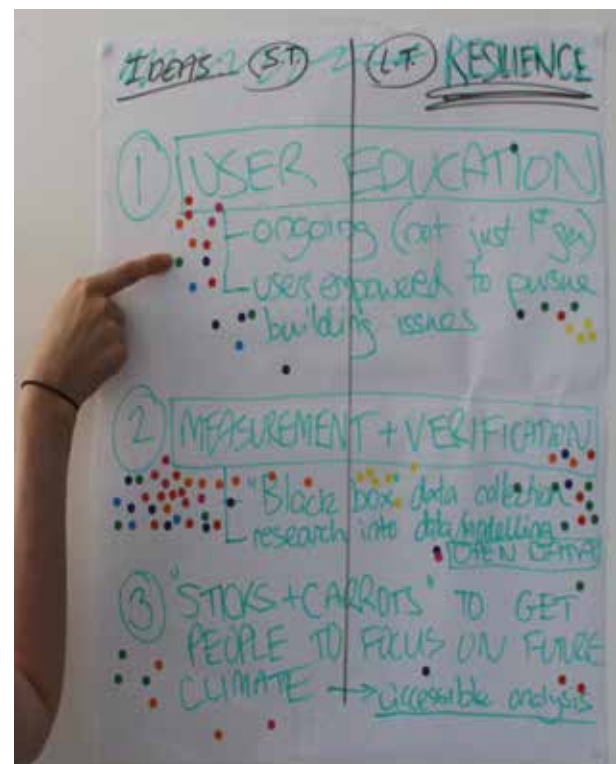 IDEAS (S.T.) (L.T.) RESILIENCE
1 USER EDUCATION
- ongoing (not just 1st gen)
- users empowered to pursue
building issues
2 MEASUREMENT + VERIFICATION
- "Black box" data collection
- research into data/modelling
OPEN DATA
3 "STICKS + CARROTS" TO GET
PEOPLE TO FOCUS ON FUTURE
CLIMATE → accessible analysis